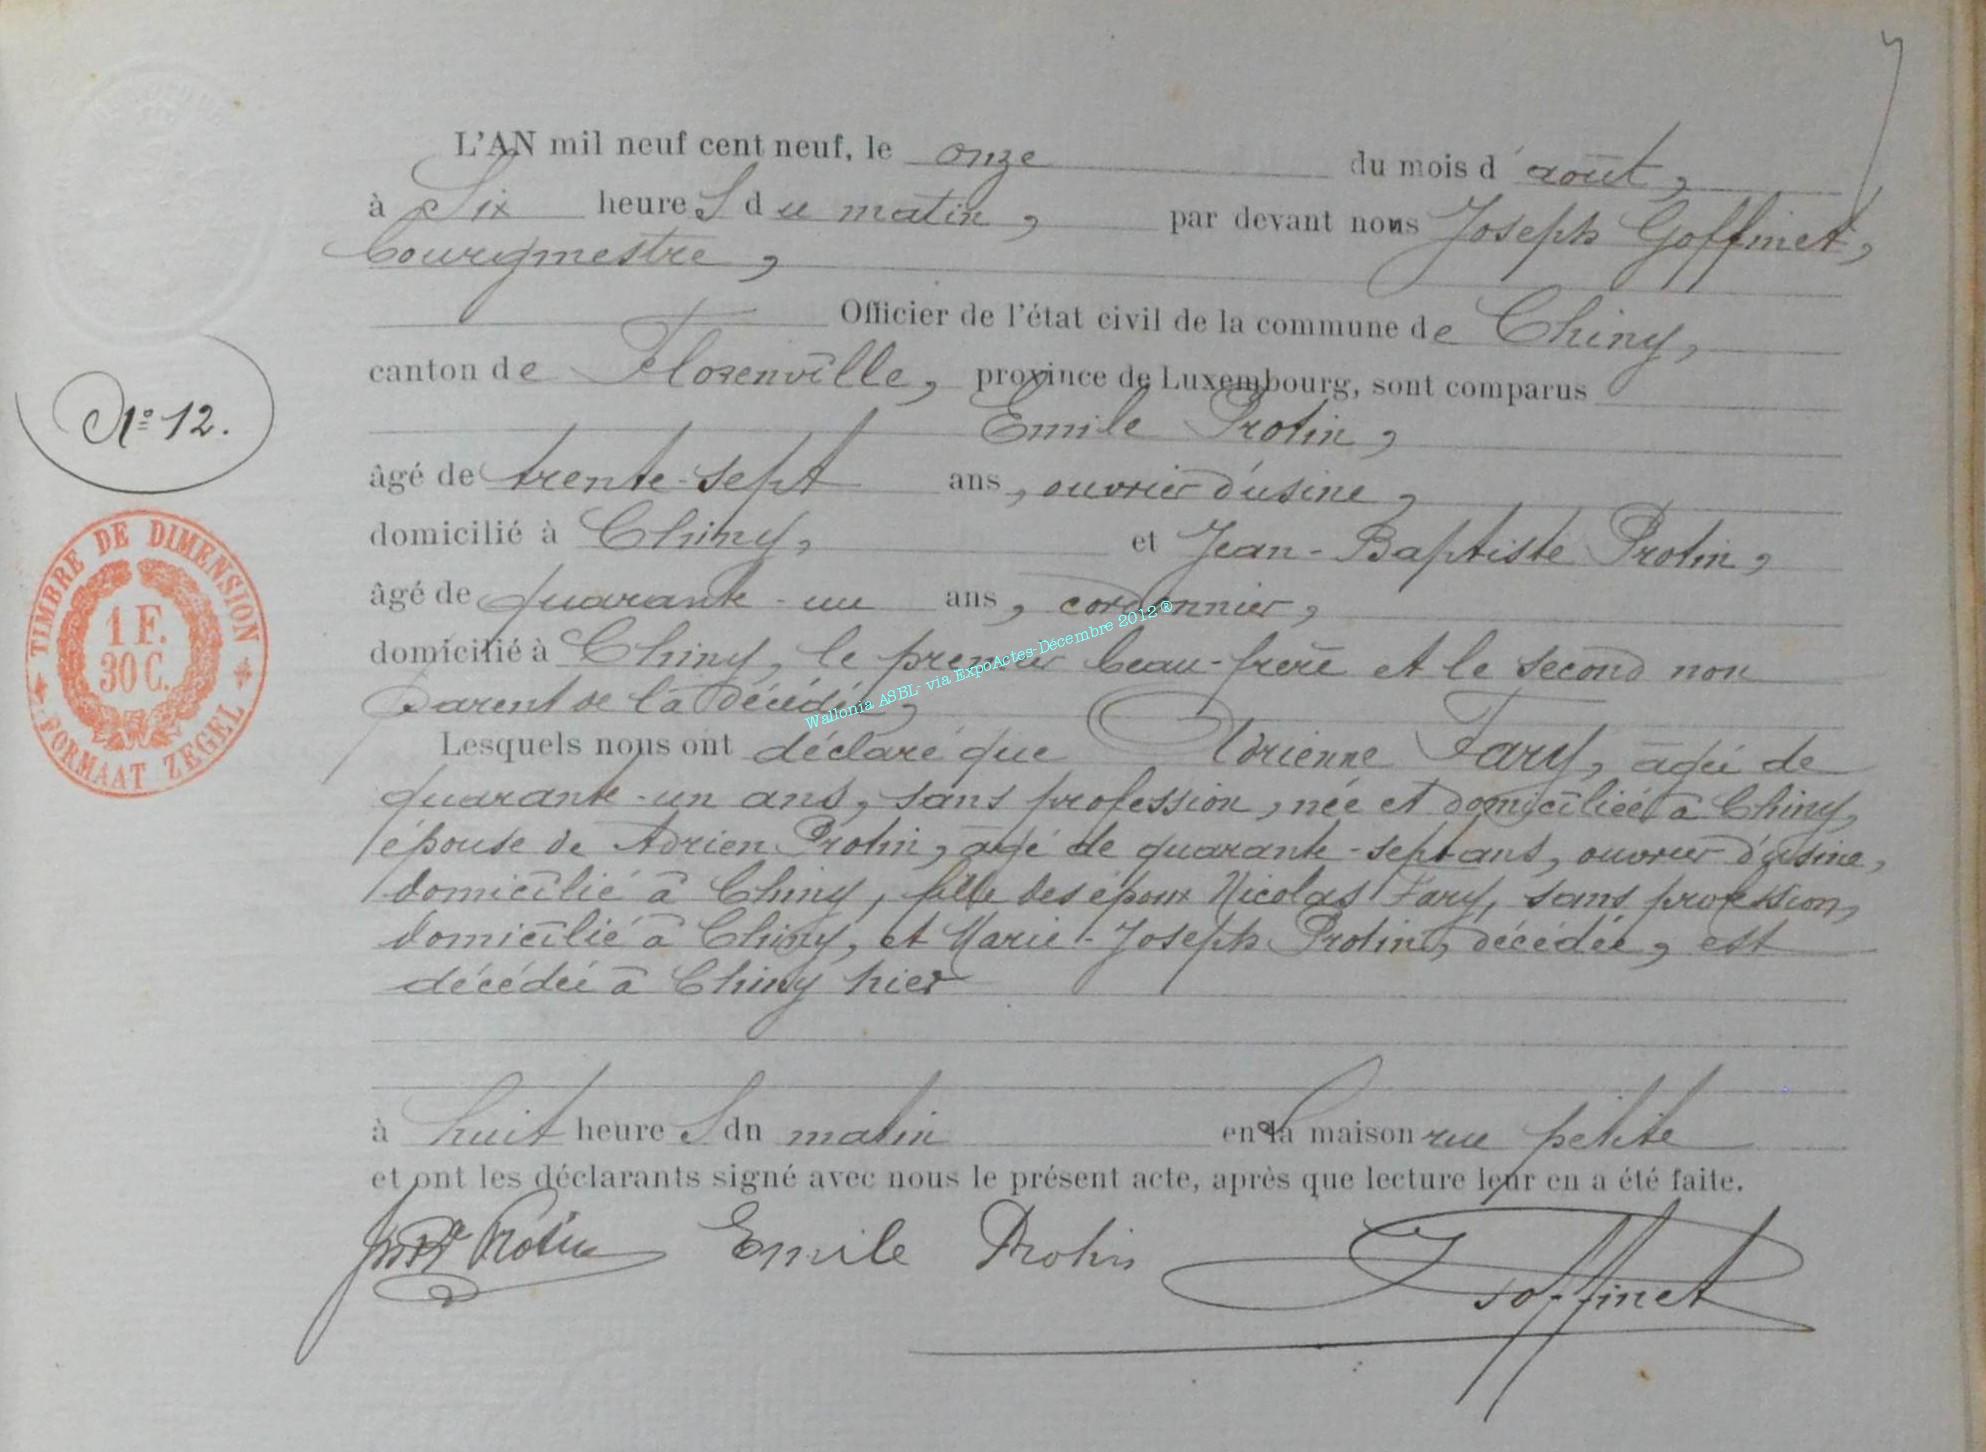 L'AN mil neuf cent neuf, le onze du mois d'août,
à Six heures du matin, par devant nous Joseph Goffinet,
bourgmestre,
Officier de l'état civil de la commune de Chiny,
canton de Florenville, province de Luxembourg, sont comparus
Emile Protin,
âgé de trente-sept ans, ouvrier d'usine,
domicilié à Chiny, et Jean-Baptiste Protin,
âgé de quarante-un ans, cordonnier,
domicilié à Chiny, le premier beau-frère et le second non
parent de la décédée,
Lesquels nous ont déclaré que Adrienne Fary, âgée de
quarante-un ans, sans profession, née et domiciliée à Chiny,
épouse de Adrien Protin, âgé de quarante-sept ans, ouvrier d'usine,
domicilié à Chiny, fille des époux Nicolas Fary, sans profession,
domicilié à Chiny, et Marie-Joseph Protin, décédée, est
décédée à Chiny hier
à huit heures du matin en la maison rue petite
et ont les déclarants signé avec nous le présent acte, après que lecture leur en a été faite.
Protin Emile Protin J Goffinet
N° 12.
TIMBRE DE DIMENSION
1 F.
30 C.
FORMAAT ZEGEL
Wallonia ASBL- via ExpoActes-Décembre 2012 ®